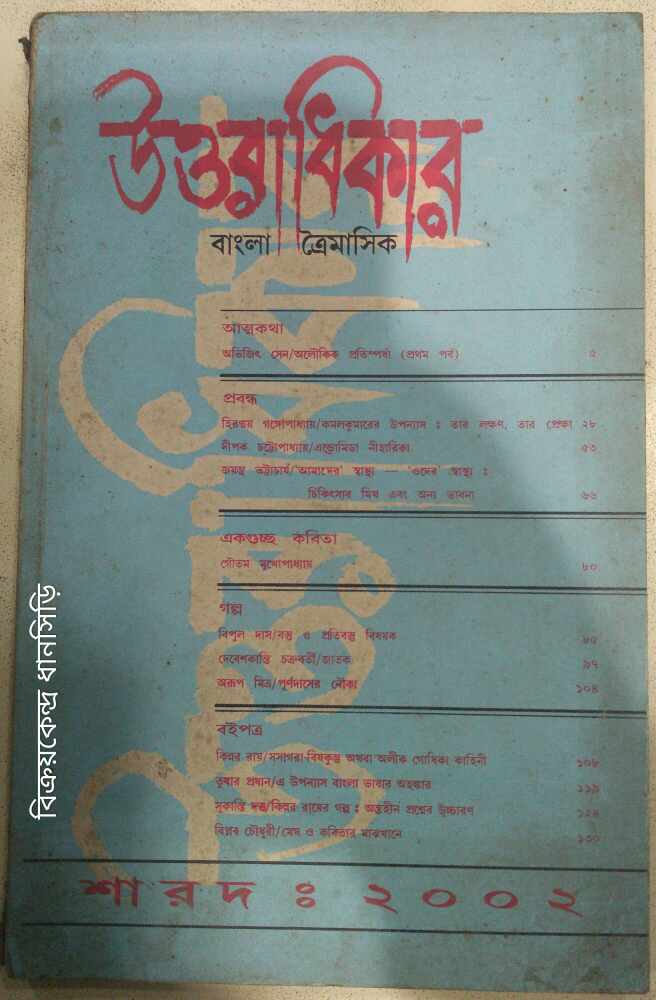 উত্তরাধিকার
বাংলা ত্রৈমাসিক
আত্মকথা
অভিজিৎ সেন/অলৌকিক প্রতিস্পর্ধা (প্রথম পর্ব) ৫
প্রবন্ধ
হিরণ্ময় গঙ্গোপাধ্যায়/কমলকুমারের উপন্যাস : তার লক্ষণ, তার প্রেক্ষা ২৮
দীপক চট্টোপাধ্যায়/এন্ড্রোমিডা নীহারিকা ৫৩
জয়ন্ত ভট্টাচার্য/'আমাদের' স্বাস্থ্য — 'ওদের' স্বাস্থ্য :
চিকিৎসার মিথ এবং অন্য ভাবনা ৬৬
একগুচ্ছ কবিতা
গৌতম মুখোপাধ্যায় ৮০
গল্প
বিপুল দাস/বস্তু ও প্রতিবস্তু বিষয়ক ৮৫
দেবেশকান্তি চক্রবর্তী/জাতক ৯৭
অরূপ মিত্র/পূর্ণদাসের নৌকা ১০৪
বইপত্র
কিন্নর রায়/সসাগরা-বিষকুম্ভ অথবা অলীক গোধিকা কাহিনী ১০৮
তুষার প্রধান/এ উপন্যাস বাংলা ভাষার অহঙ্কার ১১৯
সুকান্তি দত্ত/কিন্নর রায়ের গল্প : অন্তহীন প্রশ্নের উচ্চারণ ১২৪
বিপ্লব চৌধুরী/মেঘ ও কবিতার মাঝখানে ১৩০
শারদ ঃ ২০০২
বিক্রয়কেন্দ্র ধানসিড়ি